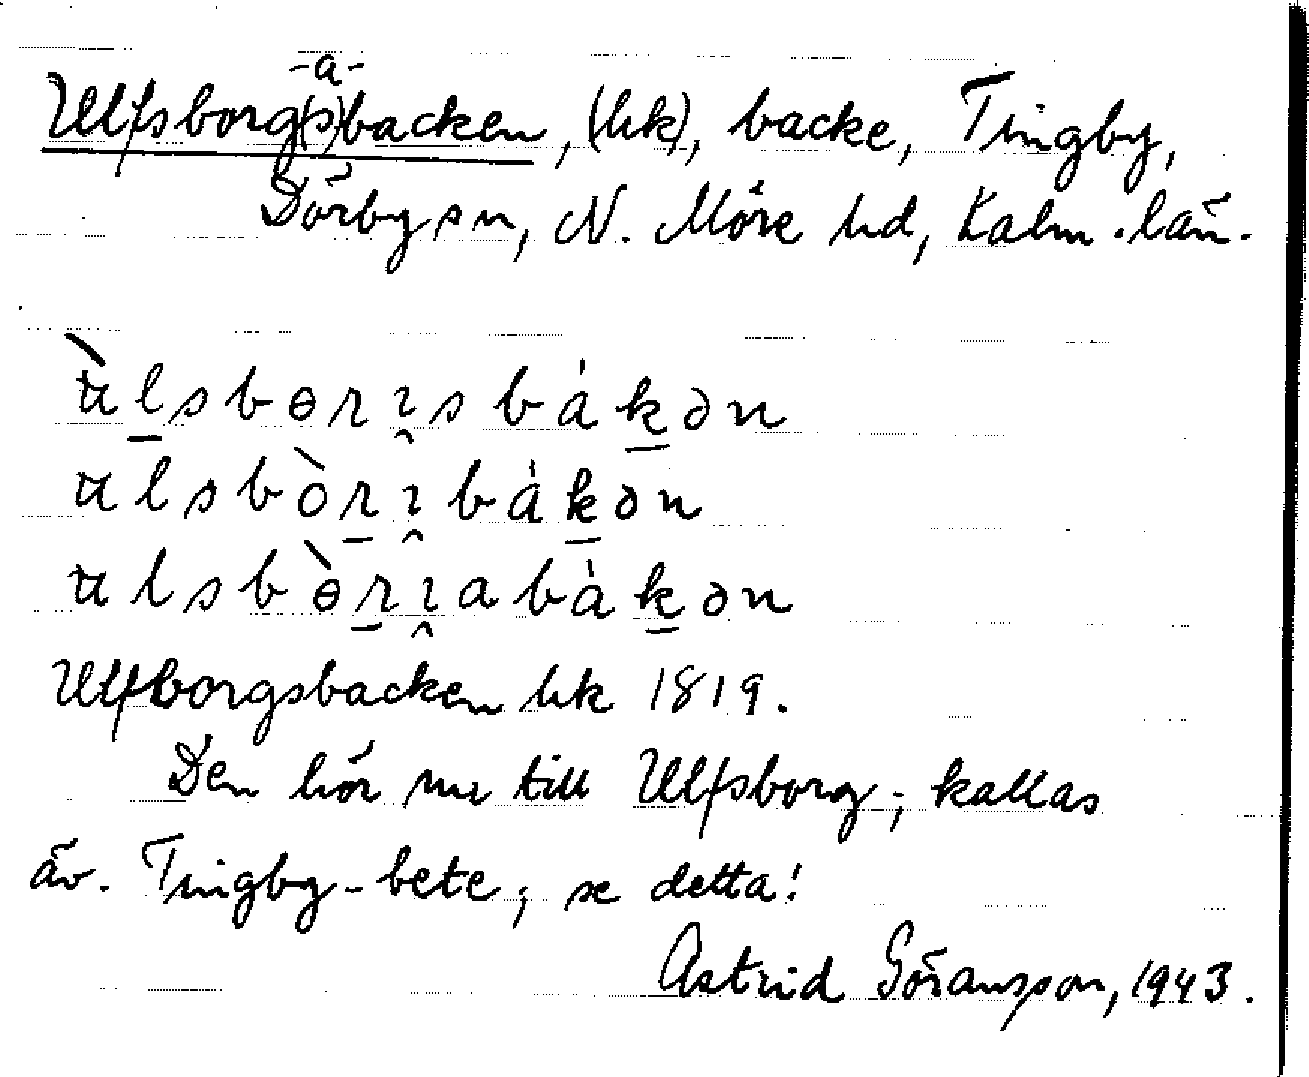 -a-
Ulfsborg(s)backen, (hk), backe, Tingby,
Dörby sn, N. Möre hd, Kalm. län.
ùlsbɵrı̯sbákən
ulsbòrı̯bákən
ulsbɵ̀rı̯abàkən
Ulfborgsbacken hk 1819.
Den hör nu till Ulfsborg; kallas
äv. Tingby-bete; se detta!
Astrid Göransson, 1943.